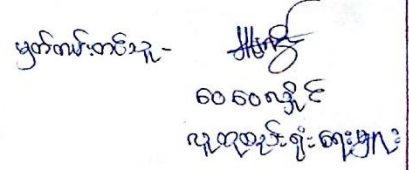 မှတ်တမ်းတင်သူ -
ဝေဝေလှိုင်
လူထုစည်းရုံးရေးမှူး